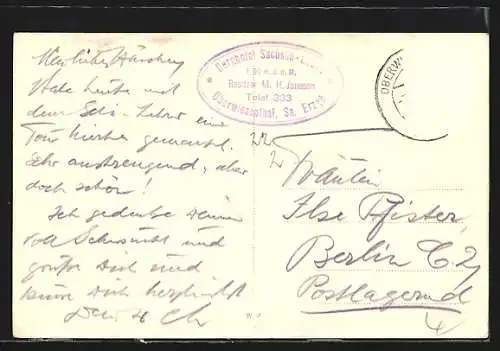 Habe heute mit
dem Ski-Lehrer eine
Tour hierher gemacht.
Sehr anstrengend, aber
doch schön!
Ich gedenke Deiner
voll Sehnsucht und
grüße Dich und
küsse Dich herzlichst
Dein
Berghotel Sachsen
Besitzer M. H. Janssen
Telef. 333
Oberwiesenthal, Sa. Erzgeb.
OBERW
Fräulein
Ilse Pfister,
Berlin C 2,
Postlagernd
W